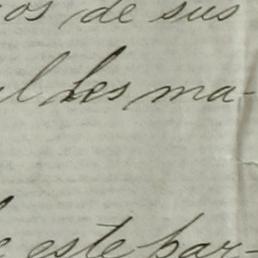 os de sus
l les ma-
e este par-